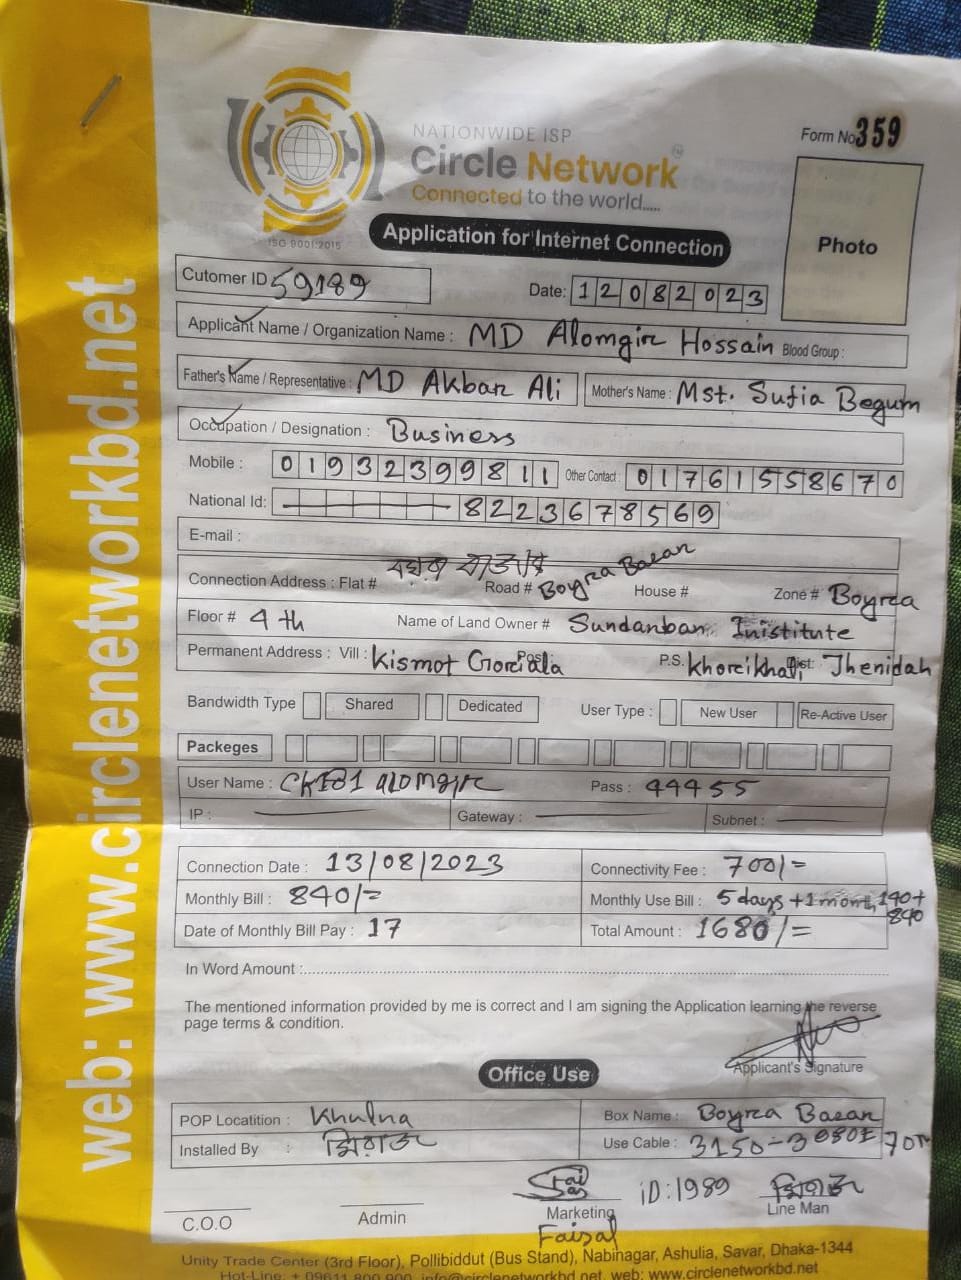 NATIONWIDE ISP
Circle Network
Connected to the world.....
ISO 9001:2015
Form No 359
Photo
Application for Internet Connection
Cutomer ID 59189
Date: 12082023
Applicant Name / Organization Name : MD Alomgir Hossain Blood Group :
Father's Name / Representative : MD Akbar Ali Mother's Name : Mst. Sufia Begum
Occupation / Designation : Business
Mobile : 01932399811 Other Contact : 01761558670
National Id: 8223678569
E-mail :
Connection Address : Flat # Road # Boyra Bazar House # Zone # Boyra
Floor # 4th Name of Land Owner # Sundanban Inistitute
Permanent Address : Vill : Kismot Post: P.S. Dist: Jhenidah
Bandwidth Type Shared Dedicated User Type : New User Re-Active User
Packeges
User Name : alomgir Pass : 44455
IP : Gateway : Subnet :
Connection Date : 13/08/2023 Connectivity Fee : 700/=
Monthly Bill : 840/= Monthly Use Bill : 5 days +1 month 140+
840
Date of Monthly Bill Pay : 17 Total Amount : 1680/=
In Word Amount :
The mentioned information provided by me is correct and I am signing the Application learning the reverse
page terms & condition.
Applicant's Signature
Office Use
POP Locatition : Khulna Box Name : Boyra Bazar
Installed By : মিরাজ Use Cable : 3150-3080=70m
ID:1989 মিরাজ
C.O.O Admin Marketing Line Man
Faisal
Unity Trade Center (3rd Floor), Pollibiddut (Bus Stand), Nabinagar, Ashulia, Savar, Dhaka-1344
Hot-Line: + 09611 800 900, info@circlenetworkbd.net, web: www.circlenetworkbd.net
web: www.circlenetworkbd.net